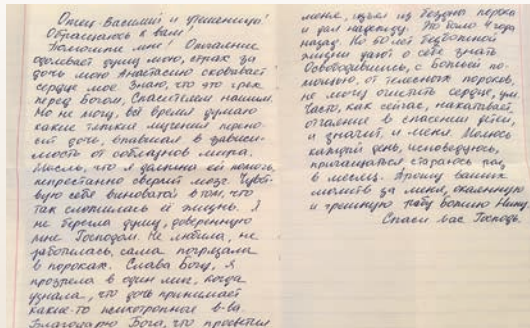 Отец Василий и уршенцы!
Обращаюсь к вам!
Помогите мне! Отчаяние
одолевает душу мою, страх за
дочь мою Анастасию сковывает
сердце мое. Знаю, что это грех
перед Богом, Спасителем нашим.
Но не могу, всё время думаю
какие тяжкие мучения перено-
сит дочь, впавшая в зависи-
мость от соблазнов мира.
Мысль, что я должна ей помочь,
непрестанно сверлит мозг. Чувст-
вую себя виноватой в том, что
так сложилась её жизнь. Я
не берегла душу, доверенную
мне Господом. Не любила, не
заботилась, сама погрязала
в пороках. Слава Богу, я
прозрела в один миг, когда
узнала, что дочь принимает
какие-то психотропные в-ва
Благодарю Бога, что просветил
меня, изъял из бездны порока
и дал надежду. Это было 4 года
назад. Но 50 лет безбожной
жизни дают о себе знать
Освободившись, с Божьей по-
мощью, от телесных пороков,
не могу очистить сердце, ум.
Часто, как сейчас, накатывает
отчаяние в спасении дочери,
и значит, и меня. Молюсь
каждый день, исповедуюсь,
причащаться стараюсь раз
в месяц. Прошу ваших
молитв за меня, окаянную
и грешную рабу Божию Нину.
Спаси вас Господь.